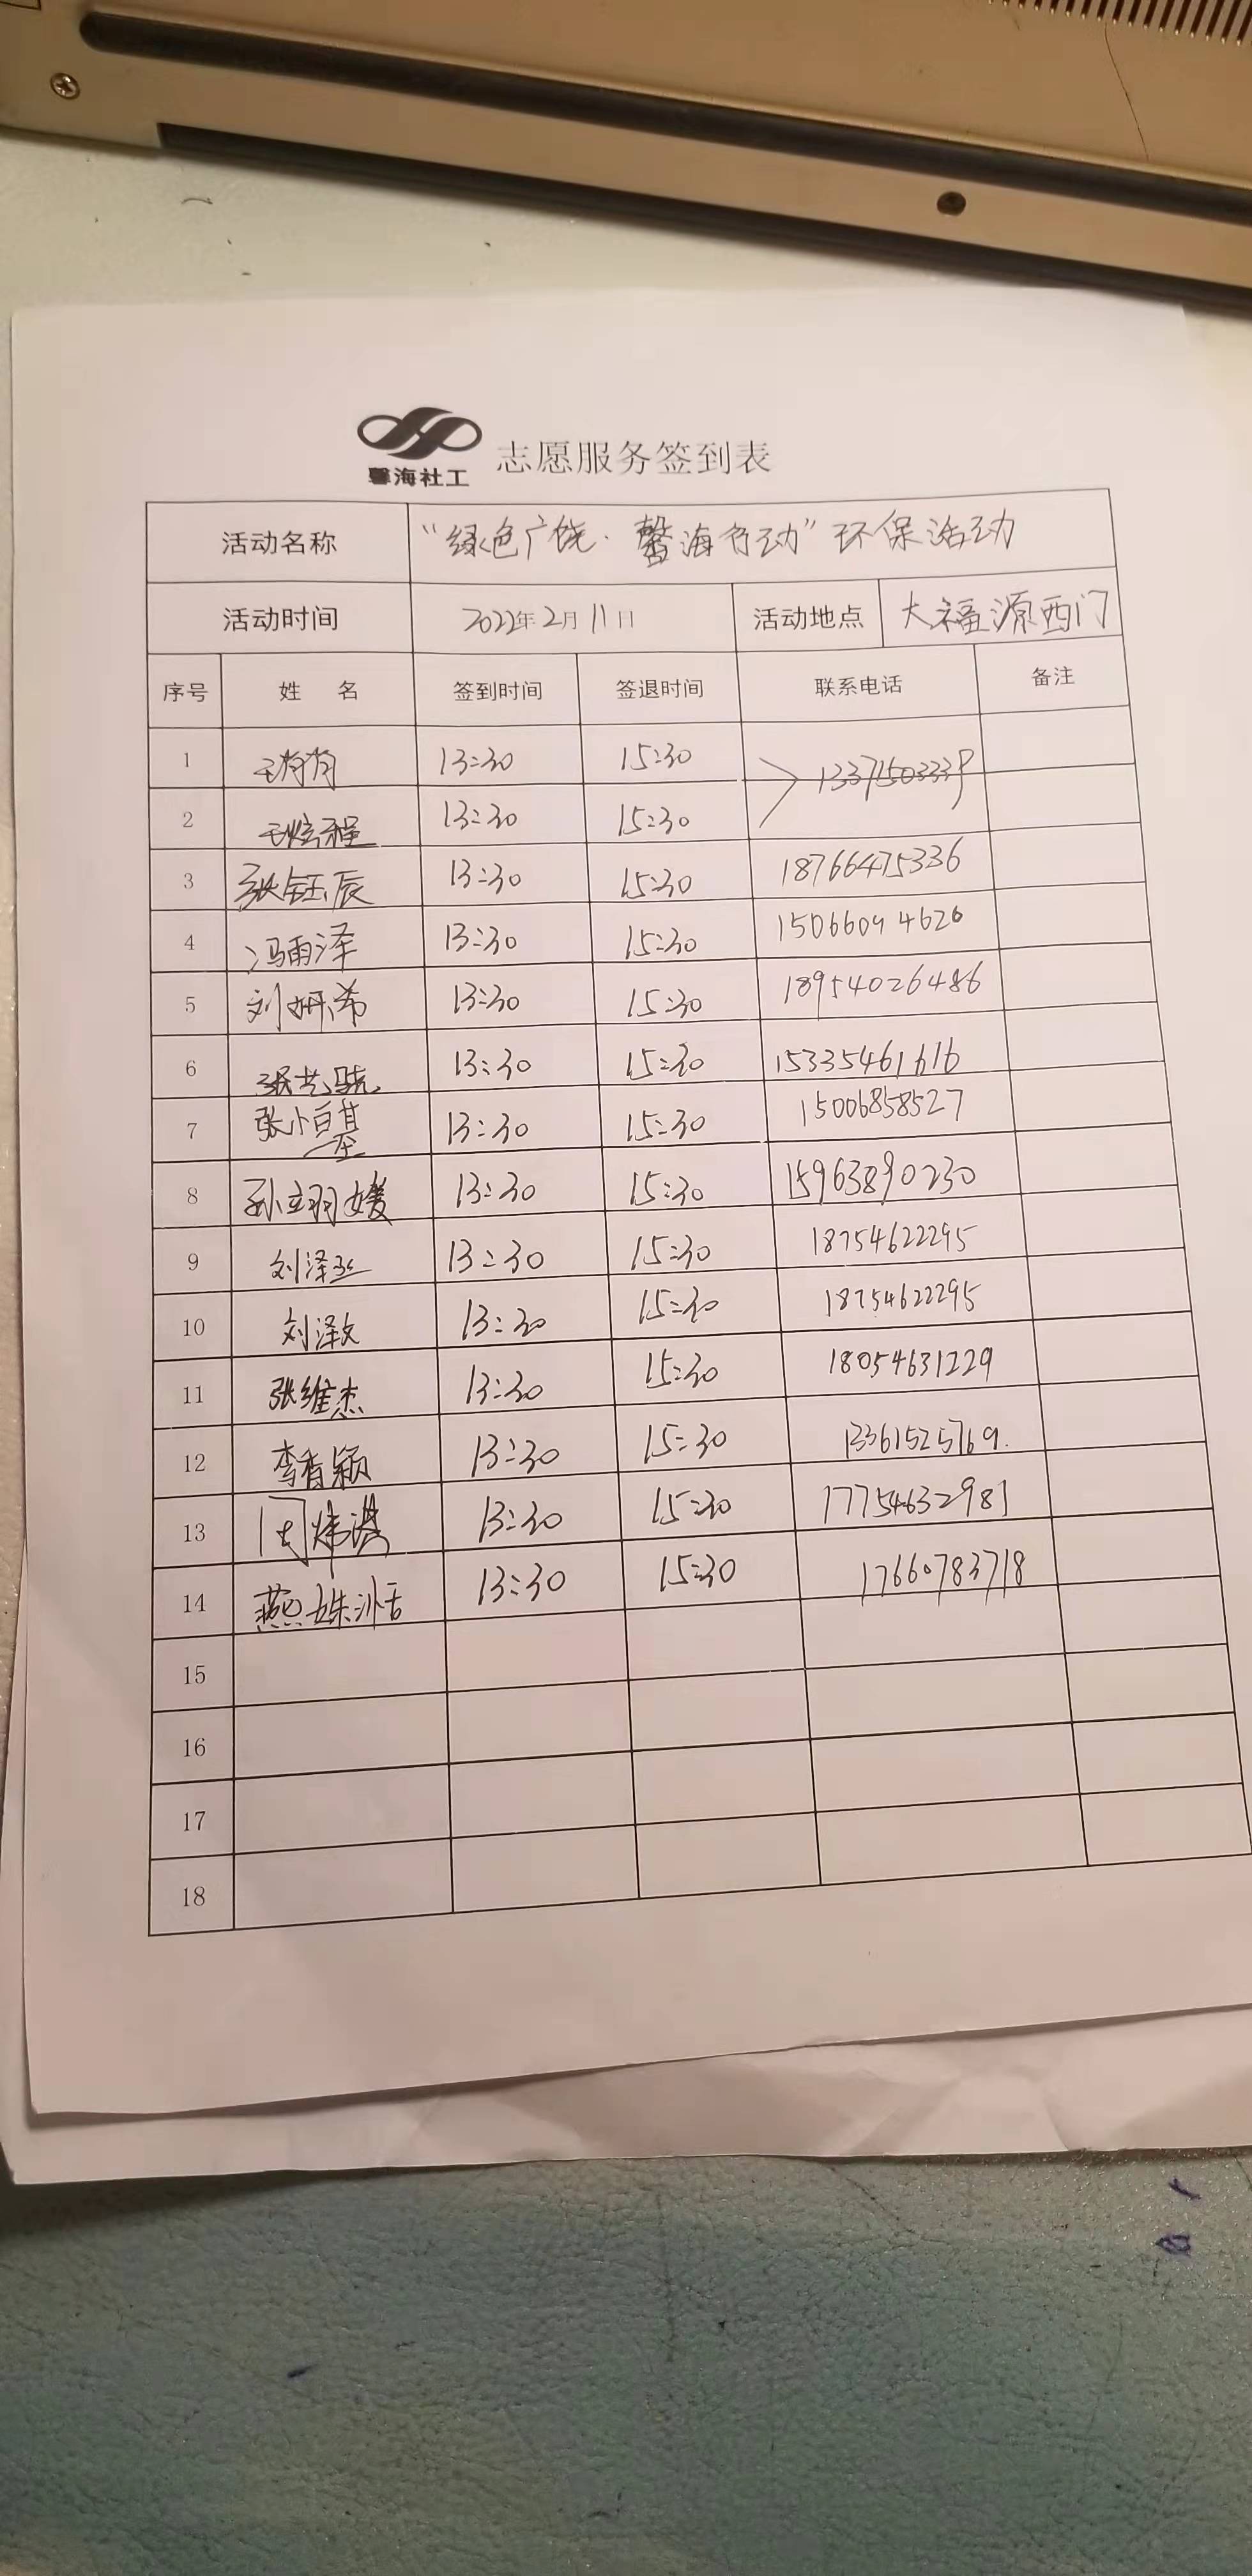 馨海社工 志愿服务签到表
活动名称 “绿色广饶·馨海行动”环保活动
活动时间 2022年2月11日 活动地点 大福源西门
序号 姓 名 签到时间 签退时间 联系电话 备注
1 13:30 15:30 13371503339
2 13:30 15:30
3 张钰辰 13:30 15:30 18766475336
4 冯雨泽 13:30 15:30 15066094620
5 刘妍希 13:30 15:30 18954026486
6 张艺骁 13:30 15:30 15335461616
7 张小 13:30 15:30 15006858527
8 孙立翔媛 13:30 15:30 15963890230
9 刘泽 13:30 15:30 18754622295
10 刘泽文 13:30 15:30 18754622295
11 张维杰 13:30 15:30 18054631229
12 李香颖 13:30 15:30 13361525769.
13 周炜淇 13:30 15:30 17754632981
14 燕姝 13:30 15:30 17660783718
15
16
17
18